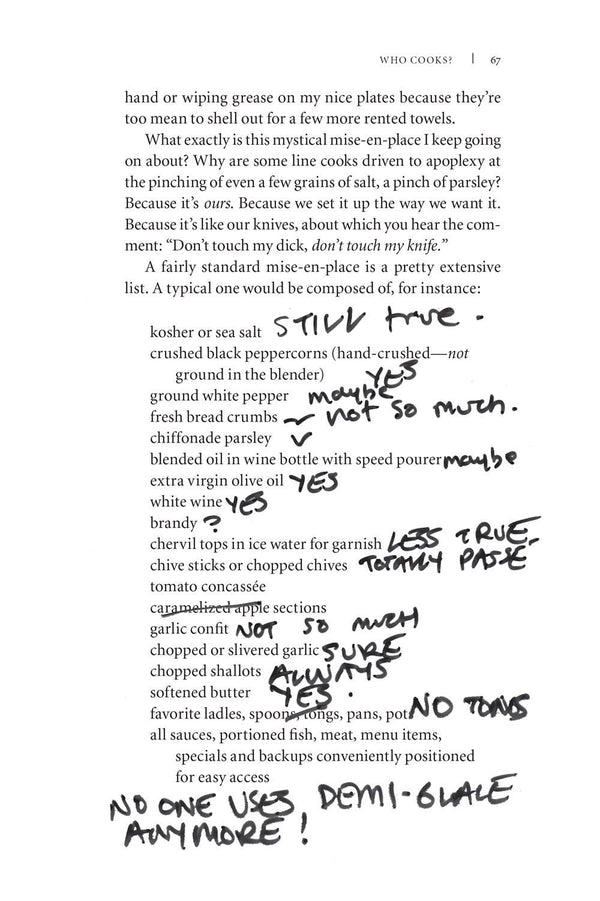 WHO COOKS? | 67
hand or wiping grease on my nice plates because they’re
too mean to shell out for a few more rented towels.
What exactly is this mystical mise-en-place I keep going
on about? Why are some line cooks driven to apoplexy at
the pinching of even a few grains of salt, a pinch of parsley?
Because it’s ours. Because we set it up the way we want it.
Because it’s like our knives, about which you hear the com-
ment: “Don’t touch my dick, don’t touch my knife.”
A fairly standard mise-en-place is a pretty extensive
list. A typical one would be composed of, for instance:
kosher or sea salt STILL true.
crushed black peppercorns (hand-crushed—not
ground in the blender) YES
ground white pepper maybe
fresh bread crumbs – not so much.
chiffonade parsley ✓
blended oil in wine bottle with speed pourer maybe
extra virgin olive oil YES
white wine YES
brandy ?
chervil tops in ice water for garnish LESS TRUE.
chive sticks or chopped chives TOTALLY PASSE
tomato concassée
caramelized apple sections
garlic confit NOT SO MUCH
chopped or slivered garlic SURE
chopped shallots ALWAYS
softened butter YES.
favorite ladles, spoons, tongs, pans, pots NO TONGS
all sauces, portioned fish, meat, menu items,
specials and backups conveniently positioned
for easy access
NO ONE USES DEMI-GLACE
ANYMORE!